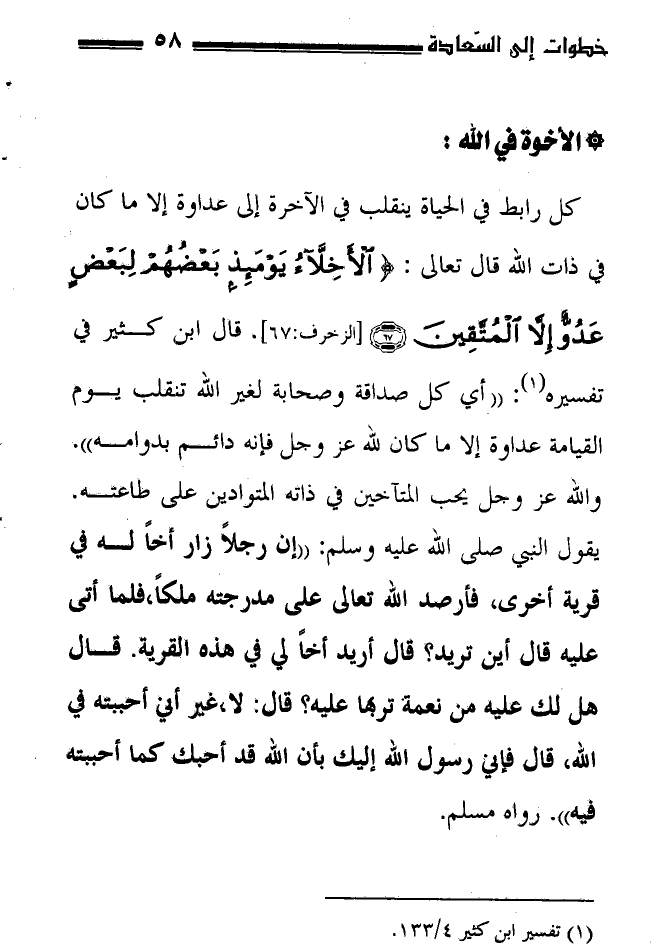 خطوات إلى السّعادة ٥٨
۞ الأخوة في الله :
كل رابط في الحياة ينقلب في الآخرة إلى عداوة إلا ما كان
في ذات الله قال تعالى : ﴿ ٱلْأَخِلَّآءُ يَوْمَئِذٍ بَعْضُهُمْ لِبَعْضٍ
عَدُوٌّ إِلَّا ٱلْمُتَّقِينَ ۝٦٧ [الزخرف:٦٧]. قال ابن كـــثير في
تفسيره(١): ((أي كل صداقة وصحابة لغير الله تنقلب يـــوم
القيامة عداوة إلا ما كان لله عز وجل فإنه دائـــم بدوامـــه)).
والله عز وجل يحب المتآخين في ذاته المتوادين على طاعتـــه.
يقول النبي صلى الله عليه وسلم: ((إن رجلاً زار أخاً لـــه في
قرية أخرى، فأرصد الله تعالى على مدرجته ملكاً،فلما أتى
عليه قال أين تريد؟ قال أريد أخاً لي في هذه القرية. قـــال
هل لك عليه من نعمة تربها عليه؟ قال: لا،غير أني أحببته في
الله، قال فإني رسول الله إليك بأن الله قد أحبك كما أحببته
فيه)). رواه مسلم.
(١) تفسير ابن كثير ١٣٣/٤.